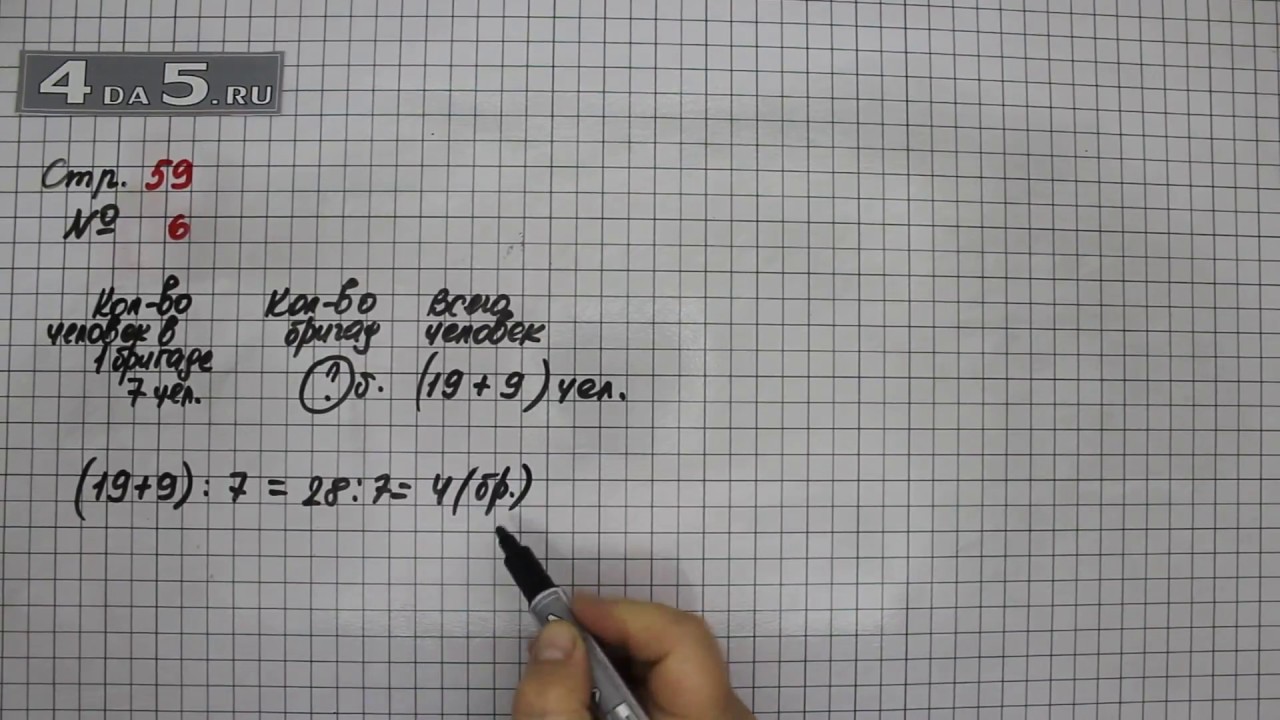 4 DA 5.RU
Стр. 59
№ 6
Кол-во человек в 1 бригаде
7 чел.
Кол-во бригад
? б.
Всего человек
(19 + 9) чел.
(19+9) : 7 = 28 : 7 = 4 (бр.)